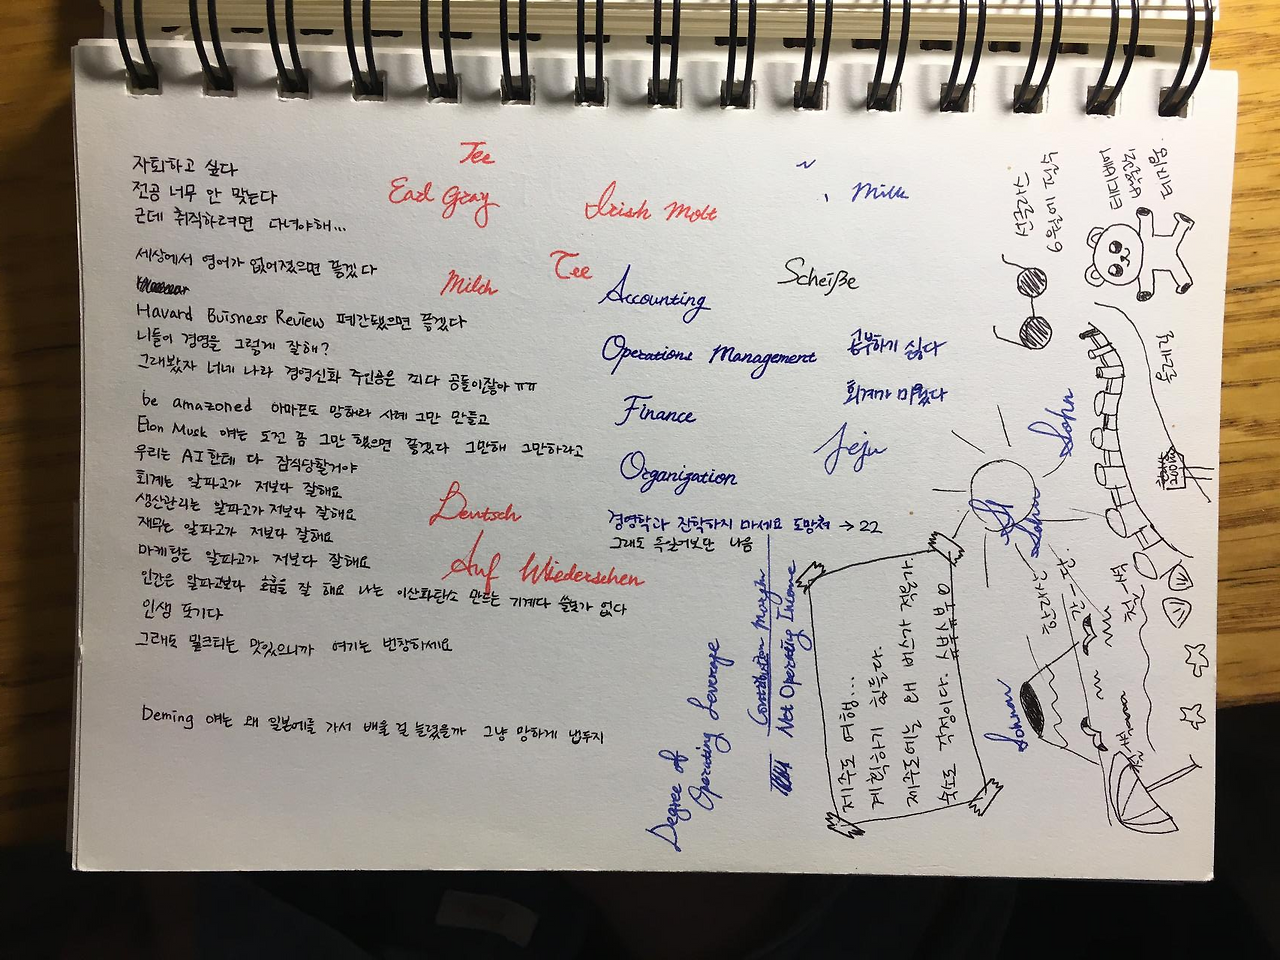 자퇴하고 싶다
전공 너무 안 맞는다
근데 취직하려면 다녀야해...
세상에서 영어가 없어졌으면 좋겠다
Havard Buisness Review 폐간됐으면 좋겠다
니들이 경영을 그렇게 잘해?
그래봤자 너네 나라 경영신화 주인공은 죄다 공돌이잖아 ㅠㅠ
be amazoned 아마존도 망해라 사례 그만 만들고
Elon Musk 얘는 도전 좀 그만 했으면 좋겠다 그만해 그만하라고
우리는 AI한테 다 잠식당할거야
회계는 알파고가 저보다 잘해요
생산관리는 알파고가 저보다 잘해요
재무는 알파고가 저보다 잘해요
마케팅은 알파고가 저보다 잘해요
인간은 알파고보다 호흡을 잘 해요 나는 이산화탄소 만드는 기계다 쓸모가 없다
인생 포기다
그래도 밀크티는 맛있으니까 여기는 번창하세요
Deming 얘는 왜 일본에를 가서 배울 걸 늘렸을까 그냥 망하게 냅두지
Tee
Earl Gray
Irish Malt
Milk
Tee
Milch
Scheiße
Accounting
Operations Management
공부하기 싫다
Finance
회계가 미웠다
Jeju
Organization
Deutsch
경영학과 진학하지 마세요 도망쳐 → 22
그래도 독일어보단 나음
Auf Wiedersehen
Degree of
Operating Leverage
Contribution Margin
Net Operating Income
제주도 여행...
계획하기 힘들다.
제주도에는 왜 버스가 적을까
숙소도 걱정이다. ㅂㅂㅂ
Sohn
Sohn
올레길
200m